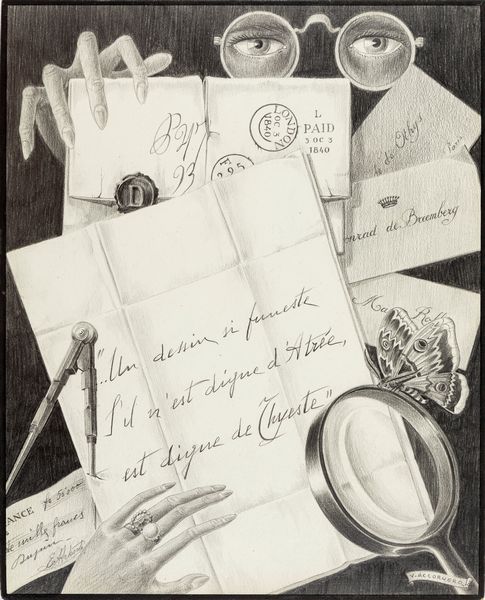 LONDON
3
OC 3
1840
L
PAID
3 OC 3
1840
F
295
D
de Rhys
onrad de Baemberg
Ma
"..Un dessin si funeste
S'il n'est digne d'Atrée,
est digne de Thyeste"
ANCE fr 50000
mille francs
Dupin
V. ACCORNERO